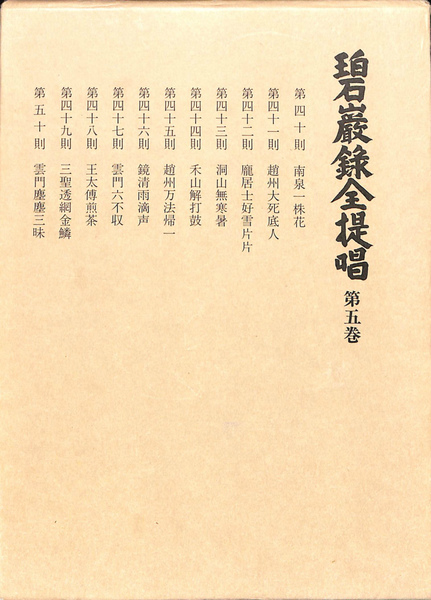 碧巌錄全提唱 第五巻
第四十則 南泉一株花
第四十一則 趙州大死底人
第四十二則 龐居士好雪片片
第四十三則 洞山無寒暑
第四十四則 禾山解打鼓
第四十五則 趙州万法帰一
第四十六則 鏡清雨滴声
第四十七則 雲門六不収
第四十八則 王太傅煎茶
第四十九則 三聖透網金鱗
第五十則 雲門塵塵三昧